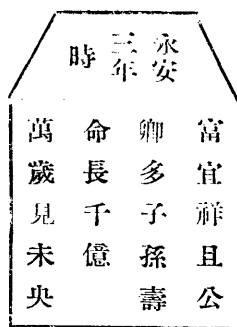 永安
三年
時
富宜祥且公
卿多子孫壽
命長千億
萬歲見未央